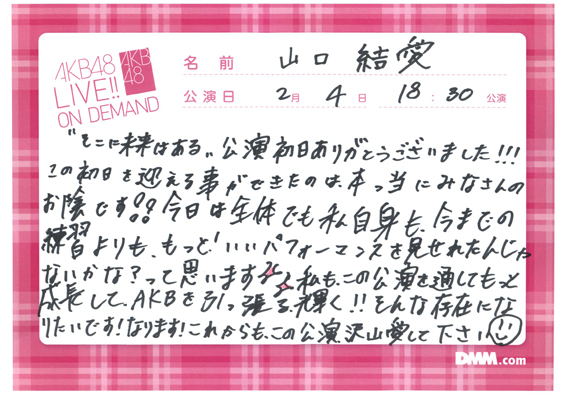 AKB48
LIVE!!
ON DEMAND
AKB
48
名前 山口 結愛
公演日 2月 4日 18:30 公演
"そこに未来はある"公演初日ありがとうございました!!!
この初日を迎える事ができたのは、本っ当にみなさんの
お陰です!!今日は全体でも私自身も、今までの
練習よりも、もっと!いいパフォーマンスを見せれたんじゃ
ないかな?って思います 私も、この公演を通してもっと
成長して、AKBを引っ張る、輝く!!そんな存在にな
りたいです!なります!これからも、この公演沢山愛して下さい
DMM.com